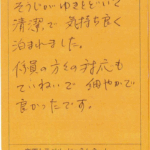 そうじがゆきとどいて
清潔で気持ち良く
泊まれました。
係員の方々の対応も
ていねいで細やかで
良かったです。